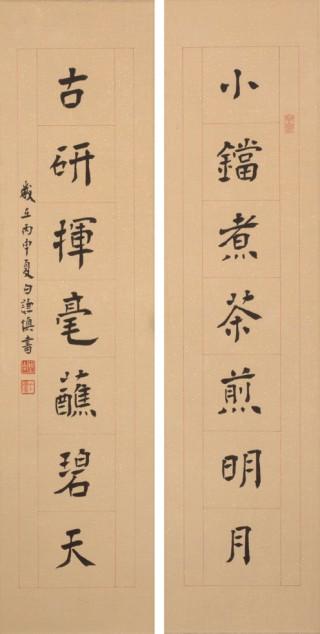 小鐺煮茶煎明月
古研揮毫蘸碧天
歲在丙申夏白謙慎書